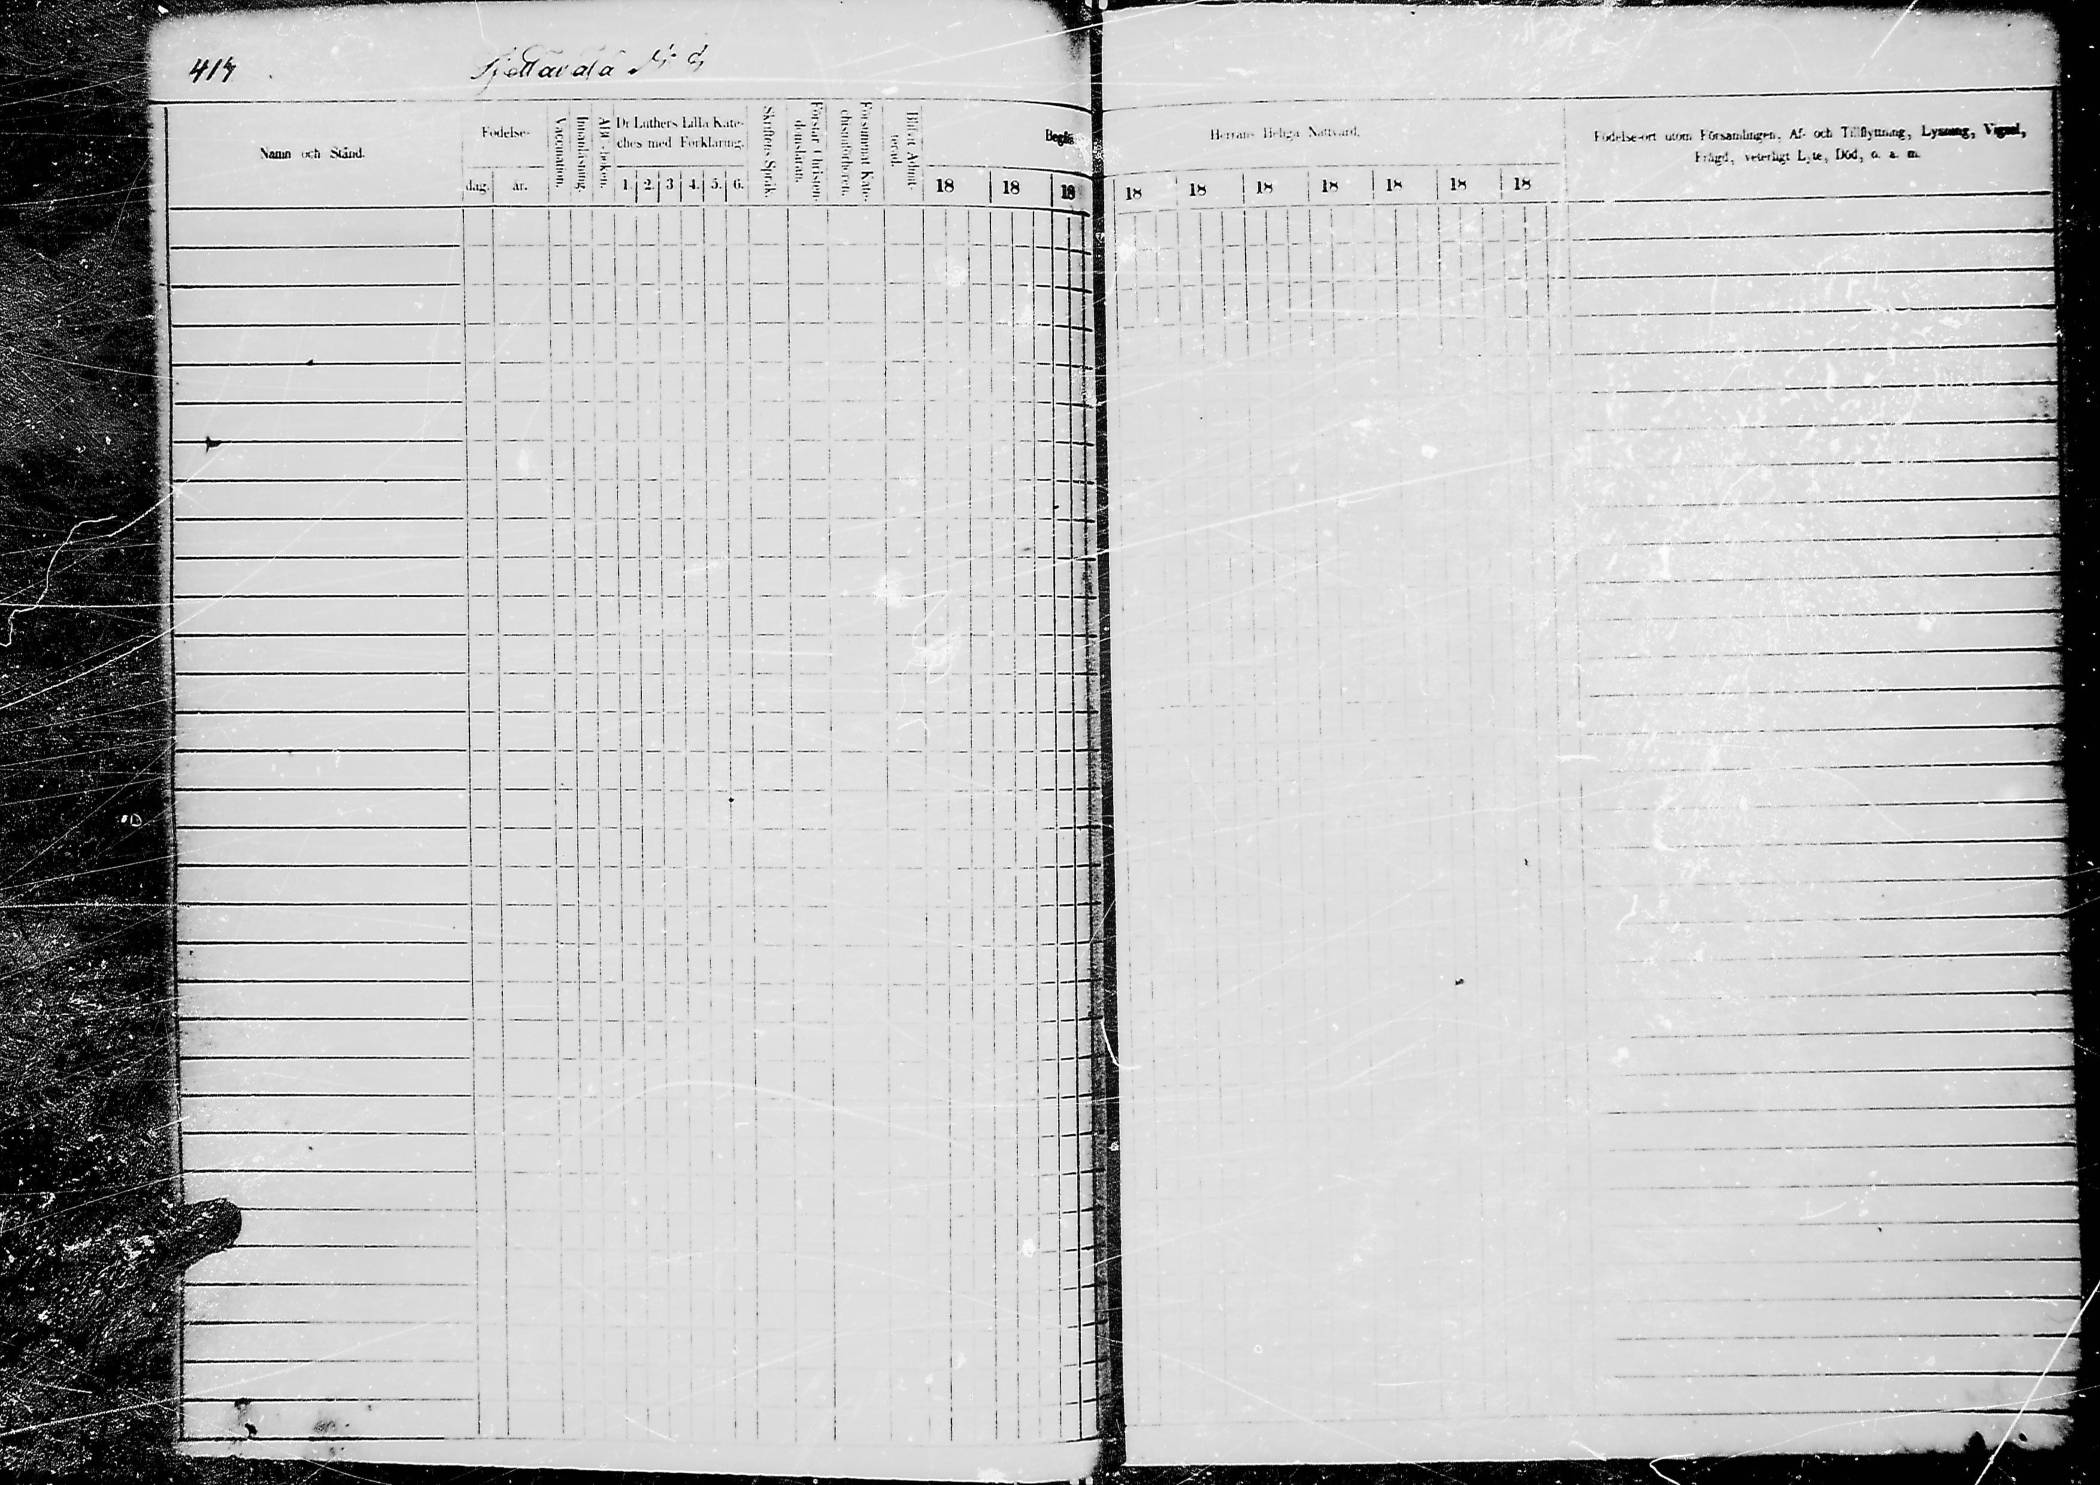 417
Namn och Stånd.
Födelse-
dag. år.
Vaccination.
Innanläsning.
ABC-boken.
Dr Luthers Lilla Kate-
ches med Förklaring.
1. 2. 3 4. 5. 6.
Skriftens Språk.
Förstår Christen-
domsläran.
Försummat Kate-
chismiförhören.
Blifvit Admit-
terad.
Begås
18 18 18
Herrans Heliga Nattvard.
18 18 18 18 18 18 18
Födelse-ort utom Församlingen, Af- och Tillflyttning, Lysning, Vigsel,
Frägd, veterligt Lyte, Död, o. a. m.